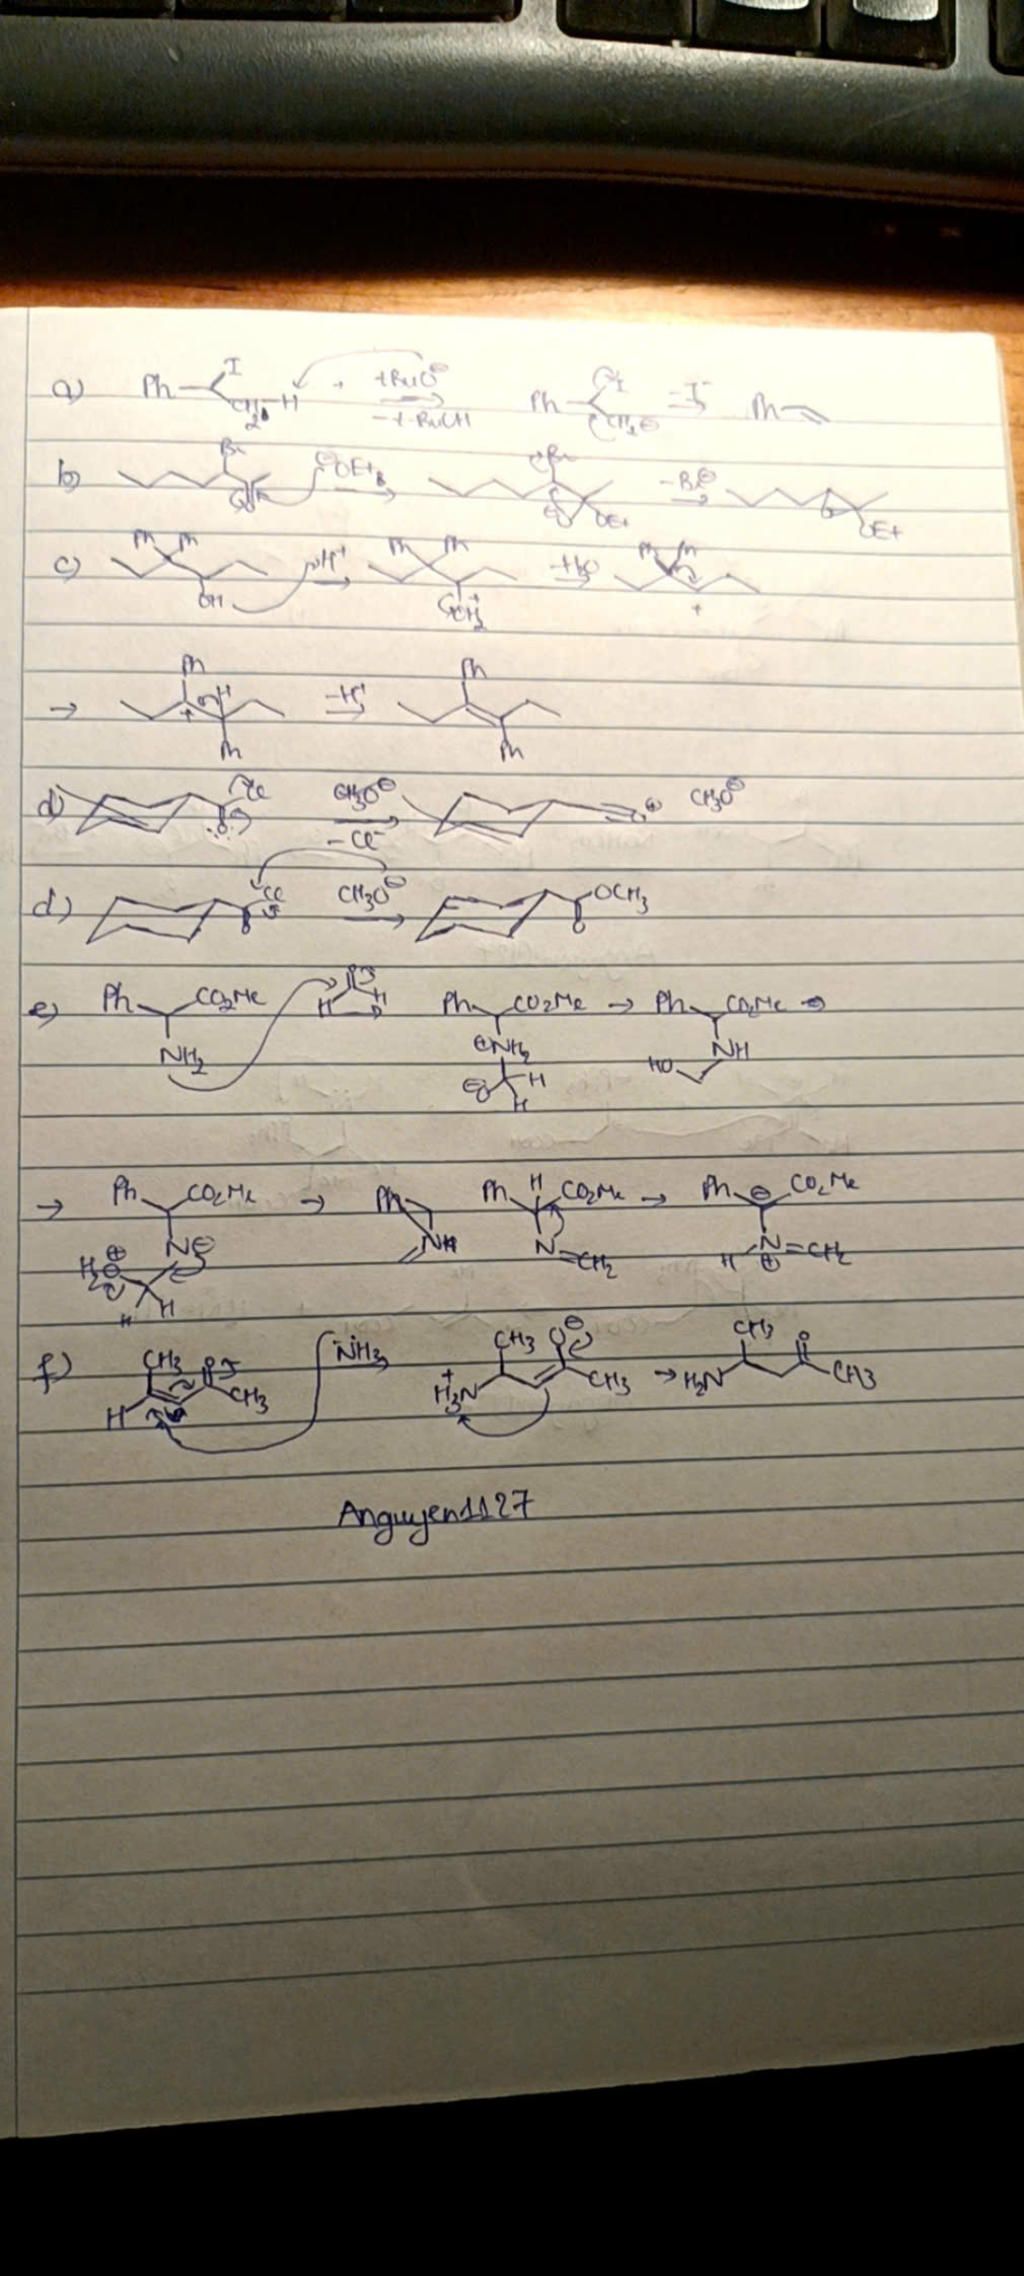 a) Ph I CH2 H + +BuO⊖ -+BuOH Ph I CH2⊖ -I- Ph
b) Br O ⊖OEt Br O⊖ OEt -Br⊖ O OEt
c) Ph Ph OH H+ Ph Ph OH2+ -H2O Ph Ph +
→ Ph + H Ph -H+ Ph Ph
d) Cl O CH3O⊖ -Cl- O⊕ CH3O⊖
d) Cl O CH3O⊖ OCH3 O
e) Ph CO2Me NH2 O H H → Ph CO2Me ⊕NH2 ⊖O H H → Ph CO2Me NH HO →
→ Ph CO2Me N⊖ H2O⊕ H H → Ph NH Ph H CO2Me N=CH2 → Ph ⊖ CO2Me H N=CH2 ⊕
f) CH3 O CH3 H NH3 CH3 O⊖ H3N+ CH3 → CH3 O H2N CH3
Anguyen1127